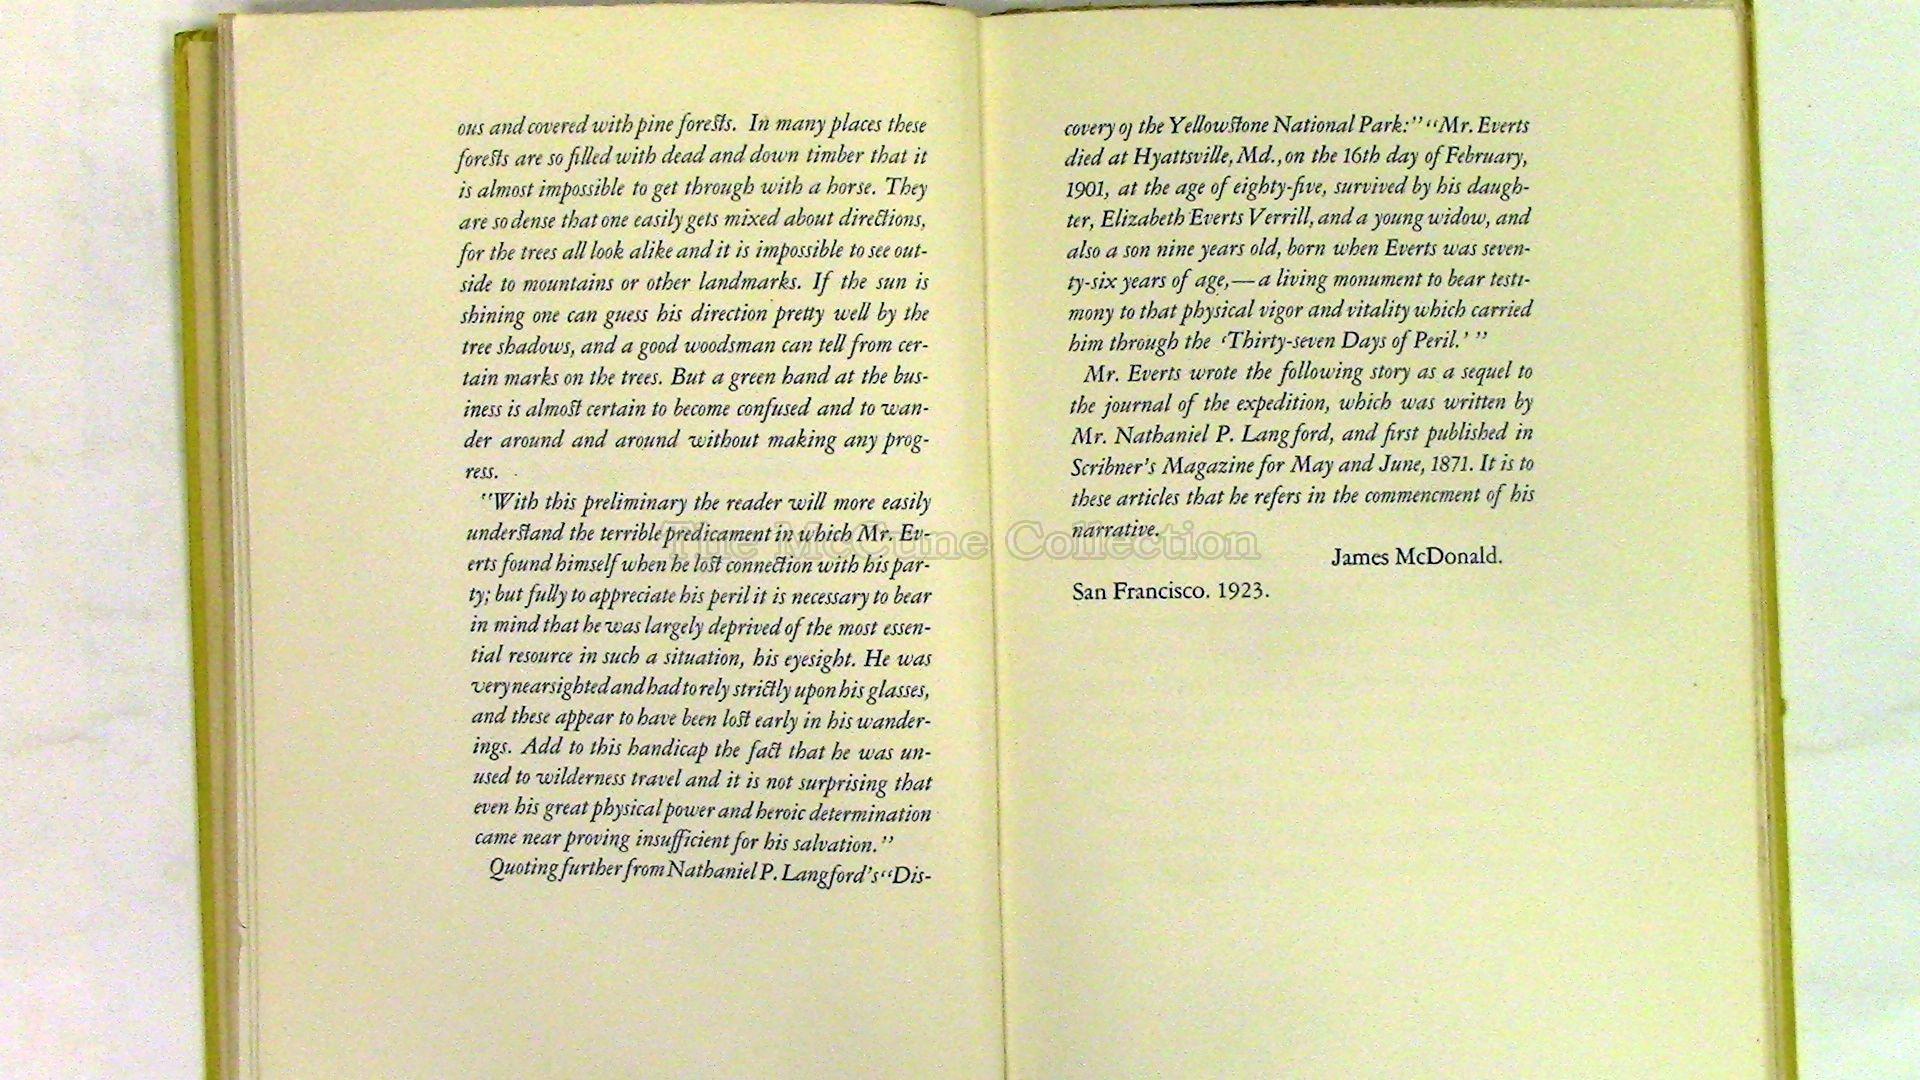 ous and covered with pine forests. In many places these
forests are so filled with dead and down timber that it
is almost impossible to get through with a horse. They
are so dense that one easily gets mixed about directions,
for the trees all look alike and it is impossible to see out-
side to mountains or other landmarks. If the sun is
shining one can guess his direction pretty well by the
tree shadows, and a good woodsman can tell from cer-
tain marks on the trees. But a green hand at the bus-
iness is almost certain to become confused and to wan-
der around and around without making any prog-
ress.
"With this preliminary the reader will more easily
understand the terrible predicament in which Mr. Ev-
erts found himself when he lost connection with his par-
ty; but fully to appreciate his peril it is necessary to bear
in mind that he was largely deprived of the most essen-
tial resource in such a situation, his eyesight. He was
very nearsighted and had to rely strictly upon his glasses,
and these appear to have been lost early in his wander-
ings. Add to this handicap the fact that he was un-
used to wilderness travel and it is not surprising that
even his great physical power and heroic determination
came near proving insufficient for his salvation."
Quoting further from Nathaniel P. Langford's "Dis-
covery of the Yellowstone National Park:" "Mr. Everts
died at Hyattsville, Md., on the 16th day of February,
1901, at the age of eighty-five, survived by his daugh-
ter, Elizabeth Everts Verrill, and a young widow, and
also a son nine years old, born when Everts was seven-
ty-six years of age,—a living monument to bear testi-
mony to that physical vigor and vitality which carried
him through the 'Thirty-seven Days of Peril.' "
Mr. Everts wrote the following story as a sequel to
the journal of the expedition, which was written by
Mr. Nathaniel P. Langford, and first published in
Scribner's Magazine for May and June, 1871. It is to
these articles that he refers in the commencment of his
narrative.
James McDonald.
San Francisco. 1923.
The McCune Collection